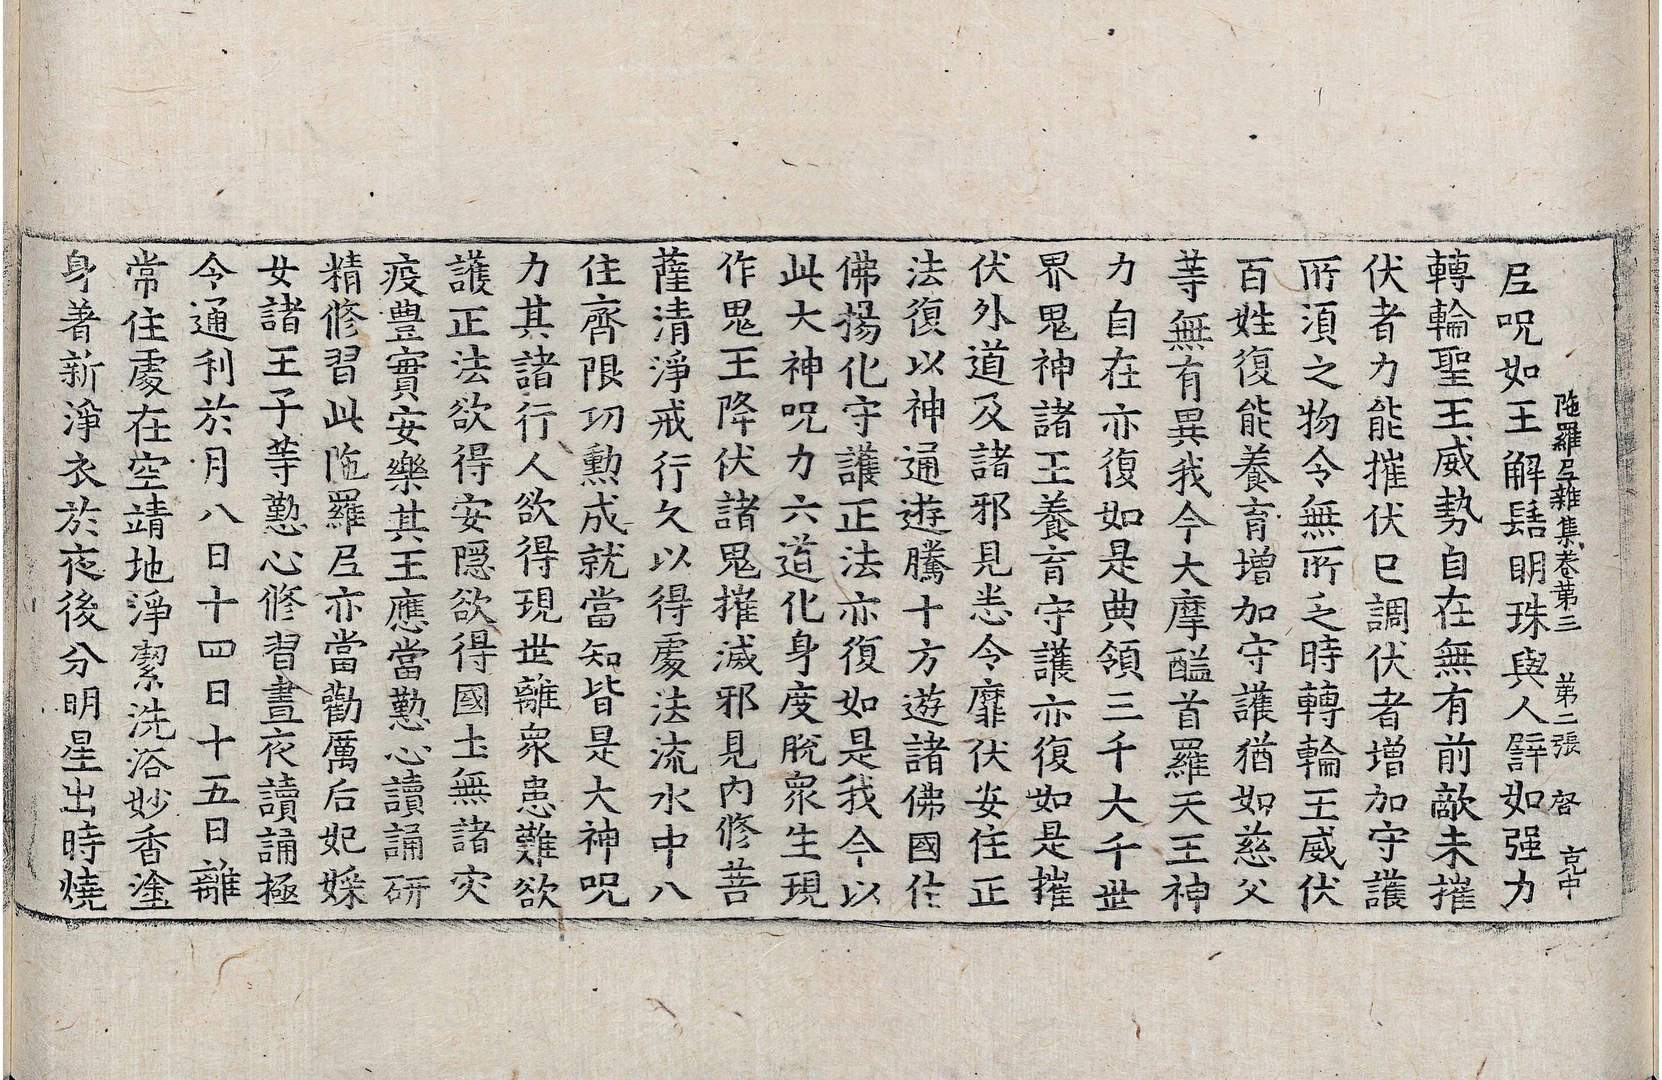 陁羅尼雜集卷第三 第二張 㕡 亮中
尼呪如王解髻明珠與人譬如强力
轉輪聖王威勢自在無有前敵未摧
伏者力能摧伏已調伏者增加守護
所湏之物令無所乏時轉輪王威伏
百姓復能養育增加守護猶如慈父
等無有異我今大摩醯首羅天王神
力自在亦復如是典領三千大千世
界鬼神諸王養育守護亦復如是摧
伏外道及諸邪見悉令靡伏安住正
法復以神通遊騰十方遊諸佛國住
佛揚化守護正法亦復如是我今以
此大神呪力六道化身度脫衆生現
作鬼王降伏諸鬼摧滅邪見內修菩
薩清淨戒行久以得處法流水中八
住齊限功勳成就當知皆是大神呪
力其諸行人欲得現世離衆患難欲
護正法欲得安隱欲得國土無諸灾
疫豊實安樂其王應當懃心讀誦研
精修習此陁羅尼亦當勸厲后妃婇
女諸王子等懃心修習晝夜讀誦極
令通利於月八日十四日十五日離
常住處在空靖地淨潔洗浴妙香塗
身著新淨衣於夜後分明星出時燒